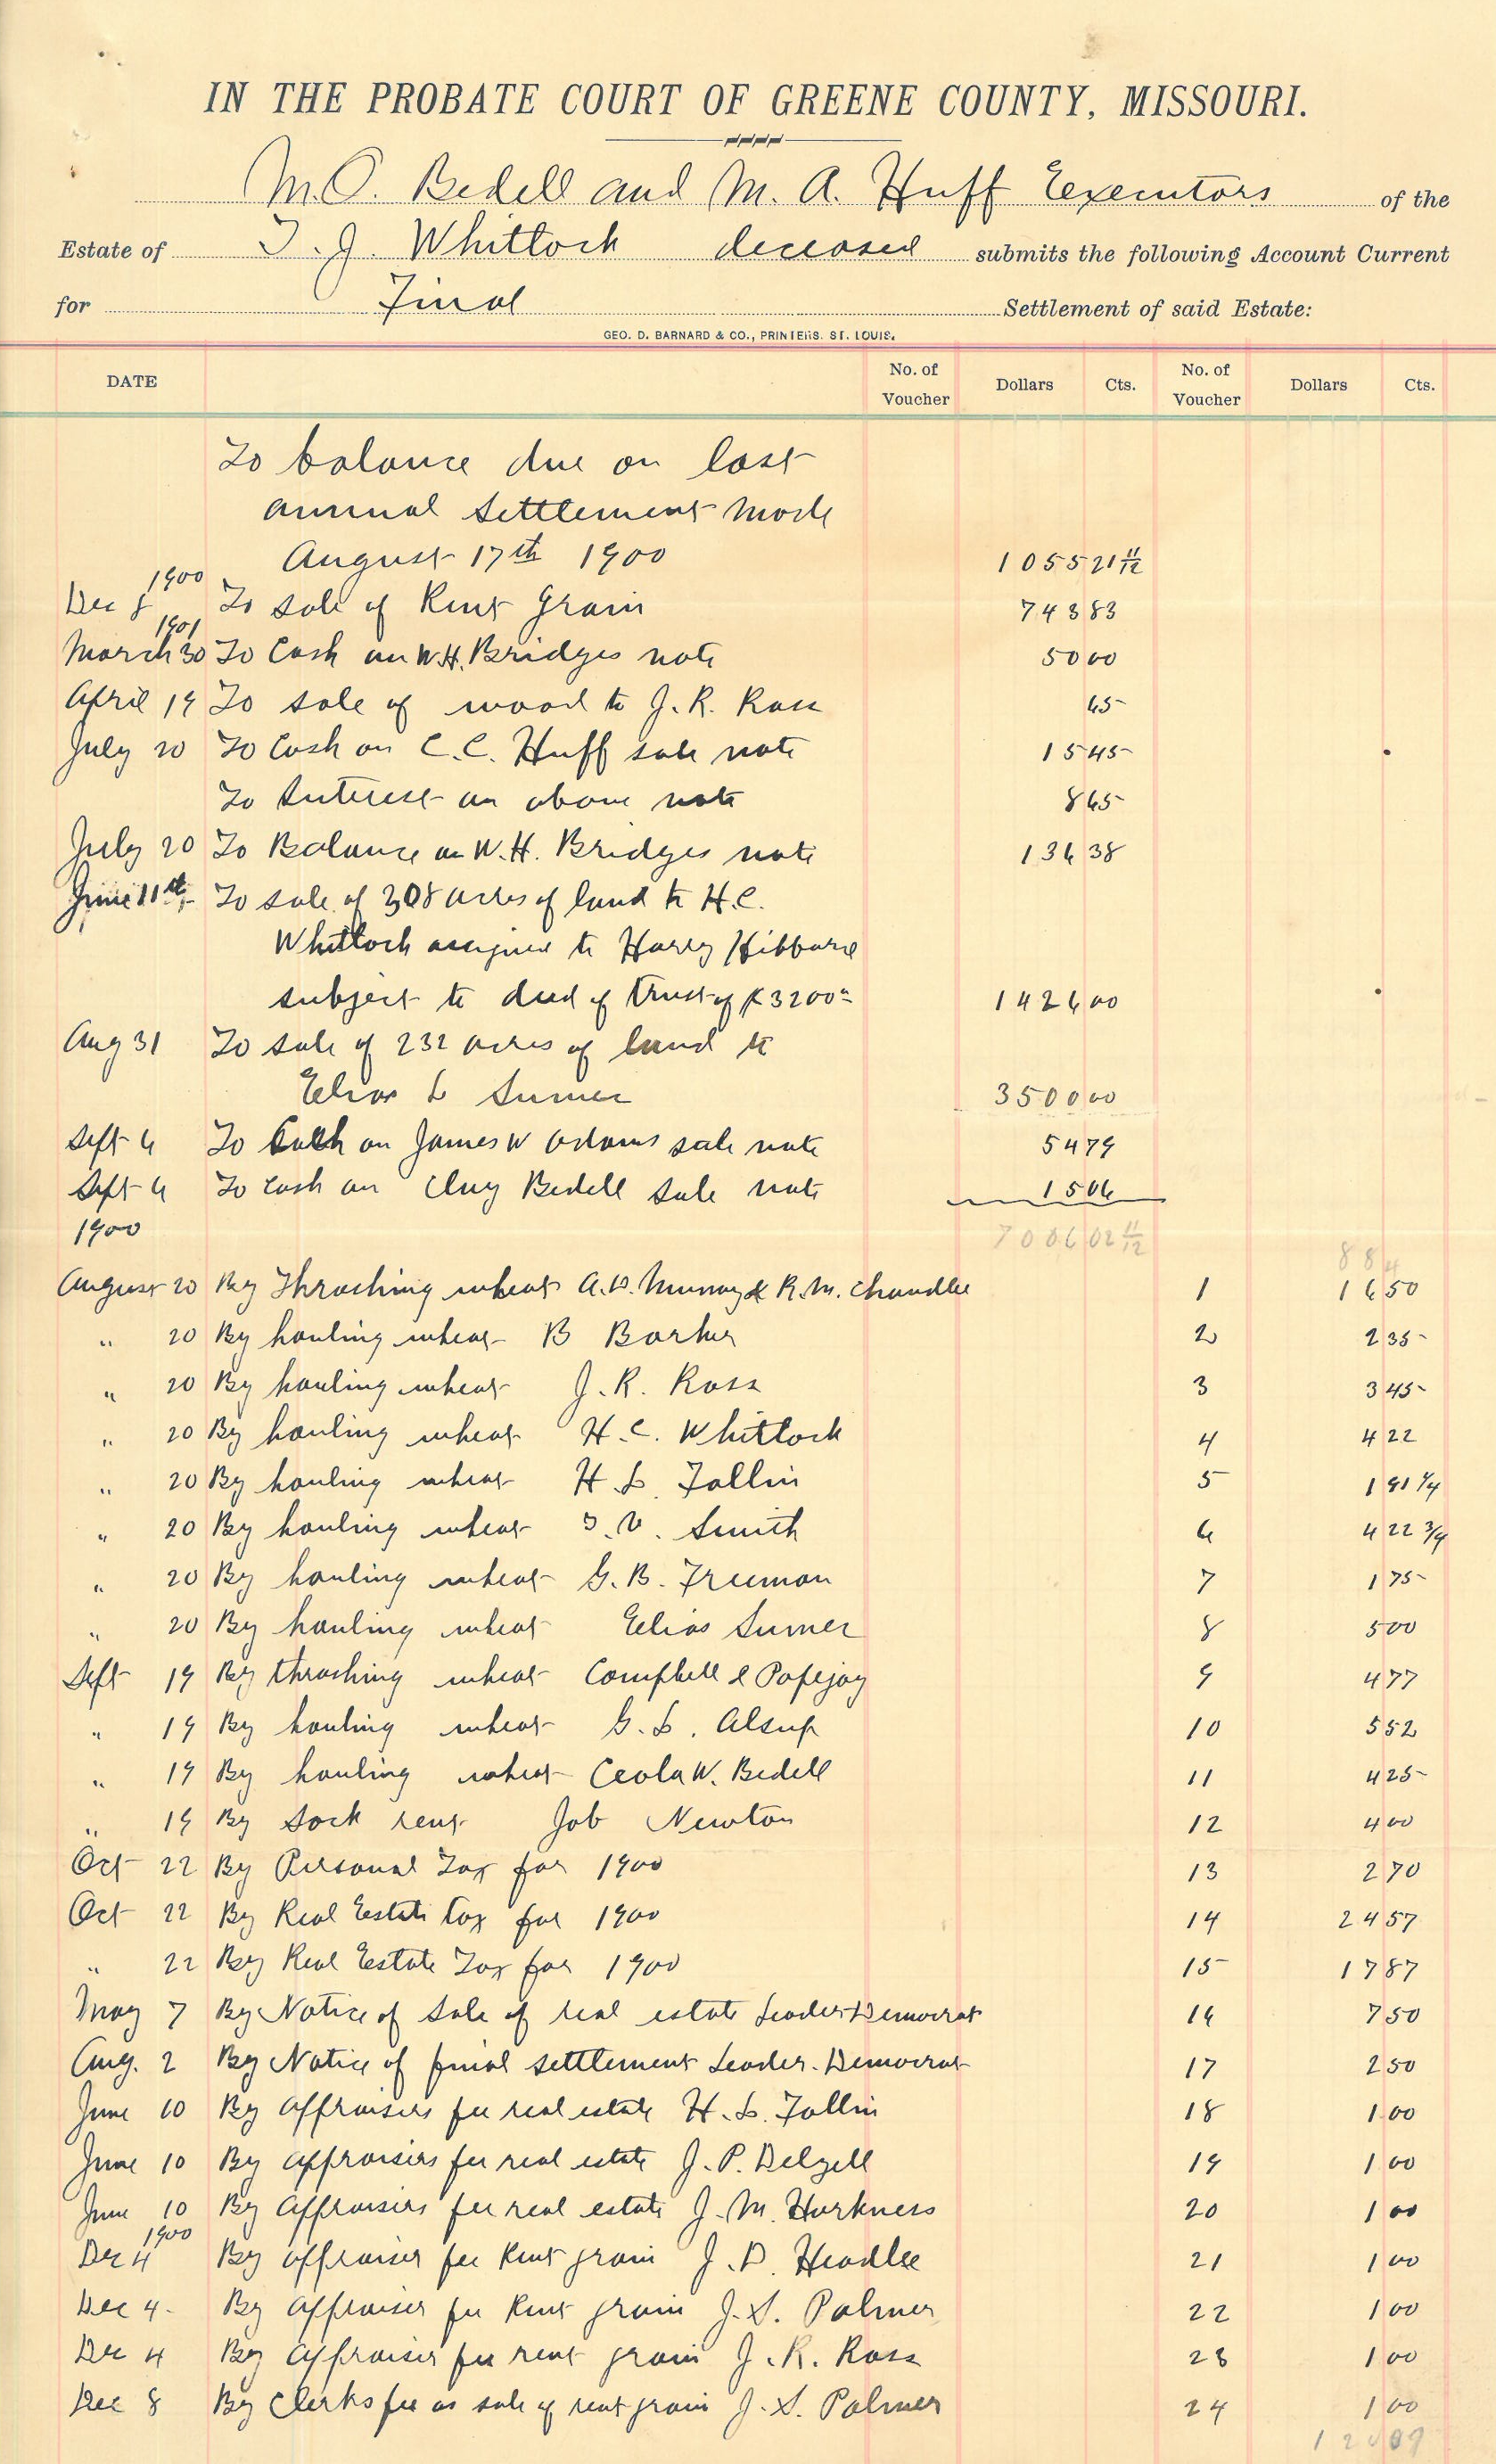 IN THE PROBATE COURT OF GREENE COUNTY, MISSOURI.
M.O. Bedell and M. A. Huff Executors of the
Estate of T. J. Whitlock deceased submits the following Account Current
for Final Settlement of said Estate:
GEO. D. BARNARD & CO., PRINTERS. ST. LOUIS.
DATE No. of Voucher Dollars Cts. No. of Voucher Dollars Cts.
To balance due on last
annual settlement made
August 17th 1900 1055 21 11/12
1900
Dec 8 To sale of Rent Grain 743 83
1901
March 30 To Cash on W.H. Bridges note 50 00
April 19 To sale of wood to J. R. Ross 65
July 20 To Cash on C.C. Huff sale note 15 45
To Interest on above note 8 65
July 20 To Balance on W.H. Bridges note 136 38
June 11th To sale of 308 acres of land to H.C.
Whitlock assigned to Harry Hibbard
subject to deed of trust of $3200 1426 00
Aug 31 To sale of 232 acres of land to
Elias L Sumer 3500 00
Sept 6 To Cash on James W Adams sale note 54 79
Sept 6 To Cash on Clay Bedell sale note 15 06
1900 7006 02 11/12
884
August 20 By Thrashing wheat A.D. Murray & R.M. Chandlee 1 16 50
" 20 By hauling wheat B Barker 2 2 35
" 20 By hauling wheat J. R. Ross 3 3 45
" 20 By hauling wheat H. C. Whitlock 4 4 22
" 20 By hauling wheat H L. Follin 5 1 91 1/4
" 20 By hauling wheat S. V. Smith 6 4 22 3/4
" 20 By hauling wheat G. B. Freeman 7 1 75
" 20 By hauling wheat Elias Sumer 8 5 00
Sept 19 By thrashing wheat Campbell & Popejoy 9 4 77
" 19 By hauling wheat G. L. Alsup 10 5 52
" 19 By hauling wheat Ceola W. Bedell 11 4 25
" 19 By Sack rent Job Newton 12 4 00
Oct 22 By Personal Tax for 1900 13 2 70
Oct 22 By Real Estate tax for 1900 14 24 57
" 22 By Real Estate Tax for 1900 15 17 87
May 7 By Notice of sale of real estate Leader Democrat 16 7 50
Aug. 2 By Notice of final settlement Leader-Democrat 17 2 50
June 10 By appraisers fee real estate H. L. Follin 18 1 00
June 10 By appraisers fee real estate J. P. Delzell 19 1 00
June 10 By Appraisers fee real estate J. M. Harkness 20 1 00
1900
Dec 4 By appraiser fee Rent grain J. D. Headlee 21 1 00
Dec 4 By appraiser fee Rent grain J. S. Palmer 22 1 00
Dec 4 By appraiser fee rent grain J. R. Ross 23 1 00
Dec 8 By Clerks fee at sale of rent grain J. S. Palmer 24 1 00